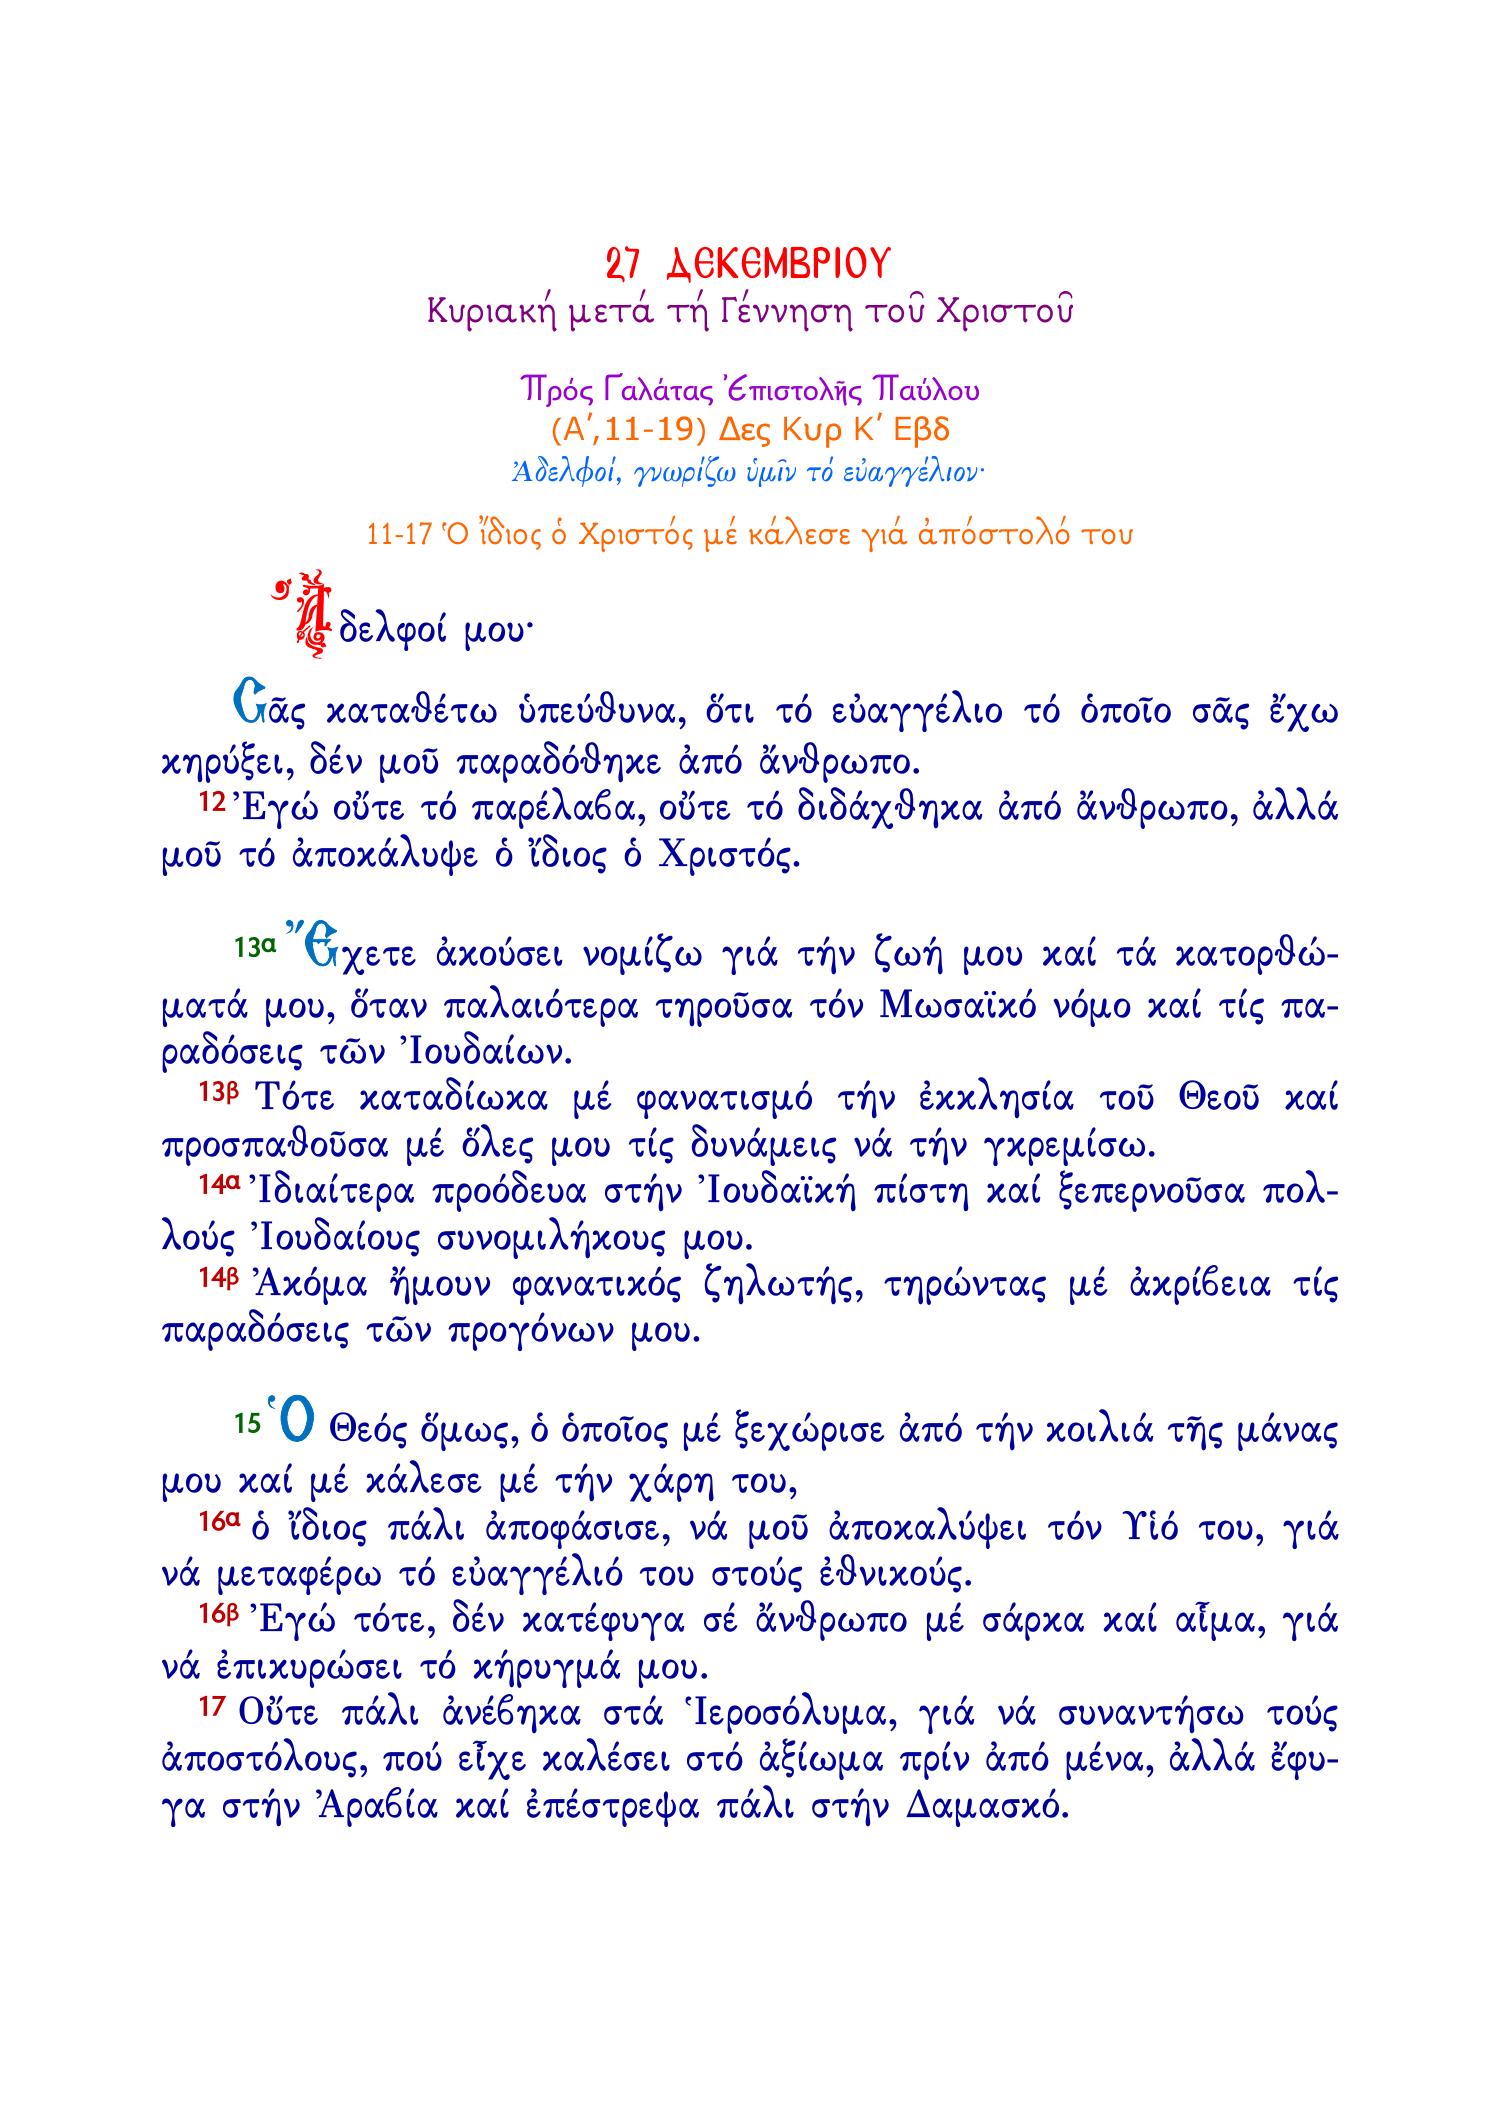 27 ΔΕΚΕΜΒΡΙΟΥ
Κυριακή μετά τή Γέννηση τοῦ Χριστοῦ
Πρός Γαλάτας Ἐπιστολῆς Παύλου
(Α΄,11-19) Δες Κυρ Κ΄ Εβδ
Ἀδελφοί, γνωρίζω ὑμῖν τό εὐαγγέλιον·
11-17 Ὁ ἴδιος ὁ Χριστός μέ κάλεσε γιά ἀπόστολό του
Ἀδελφοί μου·
Σᾶς καταθέτω ὑπεύθυνα, ὅτι τό εὐαγγέλιο τό ὁποῖο σᾶς ἔχω
κηρύξει, δέν μοῦ παραδόθηκε ἀπό ἄνθρωπο.
12 Ἐγώ οὔτε τό παρέλαβα, οὔτε τό διδάχθηκα ἀπό ἄνθρωπο, ἀλλά
μοῦ τό ἀποκάλυψε ὁ ἴδιος ὁ Χριστός.
13α Ἔχετε ἀκούσει νομίζω γιά τήν ζωή μου καί τά κατορθώ-
ματά μου, ὅταν παλαιότερα τηροῦσα τόν Μωσαϊκό νόμο καί τίς πα-
ραδόσεις τῶν Ἰουδαίων.
13β Τότε καταδίωκα μέ φανατισμό τήν ἐκκλησία τοῦ Θεοῦ καί
προσπαθοῦσα μέ ὅλες μου τίς δυνάμεις νά τήν γκρεμίσω.
14α Ἰδιαίτερα προόδευα στήν Ἰουδαϊκή πίστη καί ξεπερνοῦσα πολ-
λούς Ἰουδαίους συνομιλήκους μου.
14β Ἀκόμα ἤμουν φανατικός ζηλωτής, τηρώντας μέ ἀκρίβεια τίς
παραδόσεις τῶν προγόνων μου.
15 Ὁ Θεός ὅμως, ὁ ὁποῖος μέ ξεχώρισε ἀπό τήν κοιλιά τῆς μάνας
μου καί μέ κάλεσε μέ τήν χάρη του,
16α ὁ ἴδιος πάλι ἀποφάσισε, νά μοῦ ἀποκαλύψει τόν Υἱό του, γιά
νά μεταφέρω τό εὐαγγέλιό του στούς ἐθνικούς.
16β Ἐγώ τότε, δέν κατέφυγα σέ ἄνθρωπο μέ σάρκα καί αἷμα, γιά
νά ἐπικυρώσει τό κήρυγμά μου.
17 Οὔτε πάλι ἀνέβηκα στά Ἱεροσόλυμα, γιά νά συναντήσω τούς
ἀποστόλους, πού εἶχε καλέσει στό ἀξίωμα πρίν ἀπό μένα, ἀλλά ἔφυ-
γα στήν Ἀραβία καί ἐπέστρεψα πάλι στήν Δαμασκό.